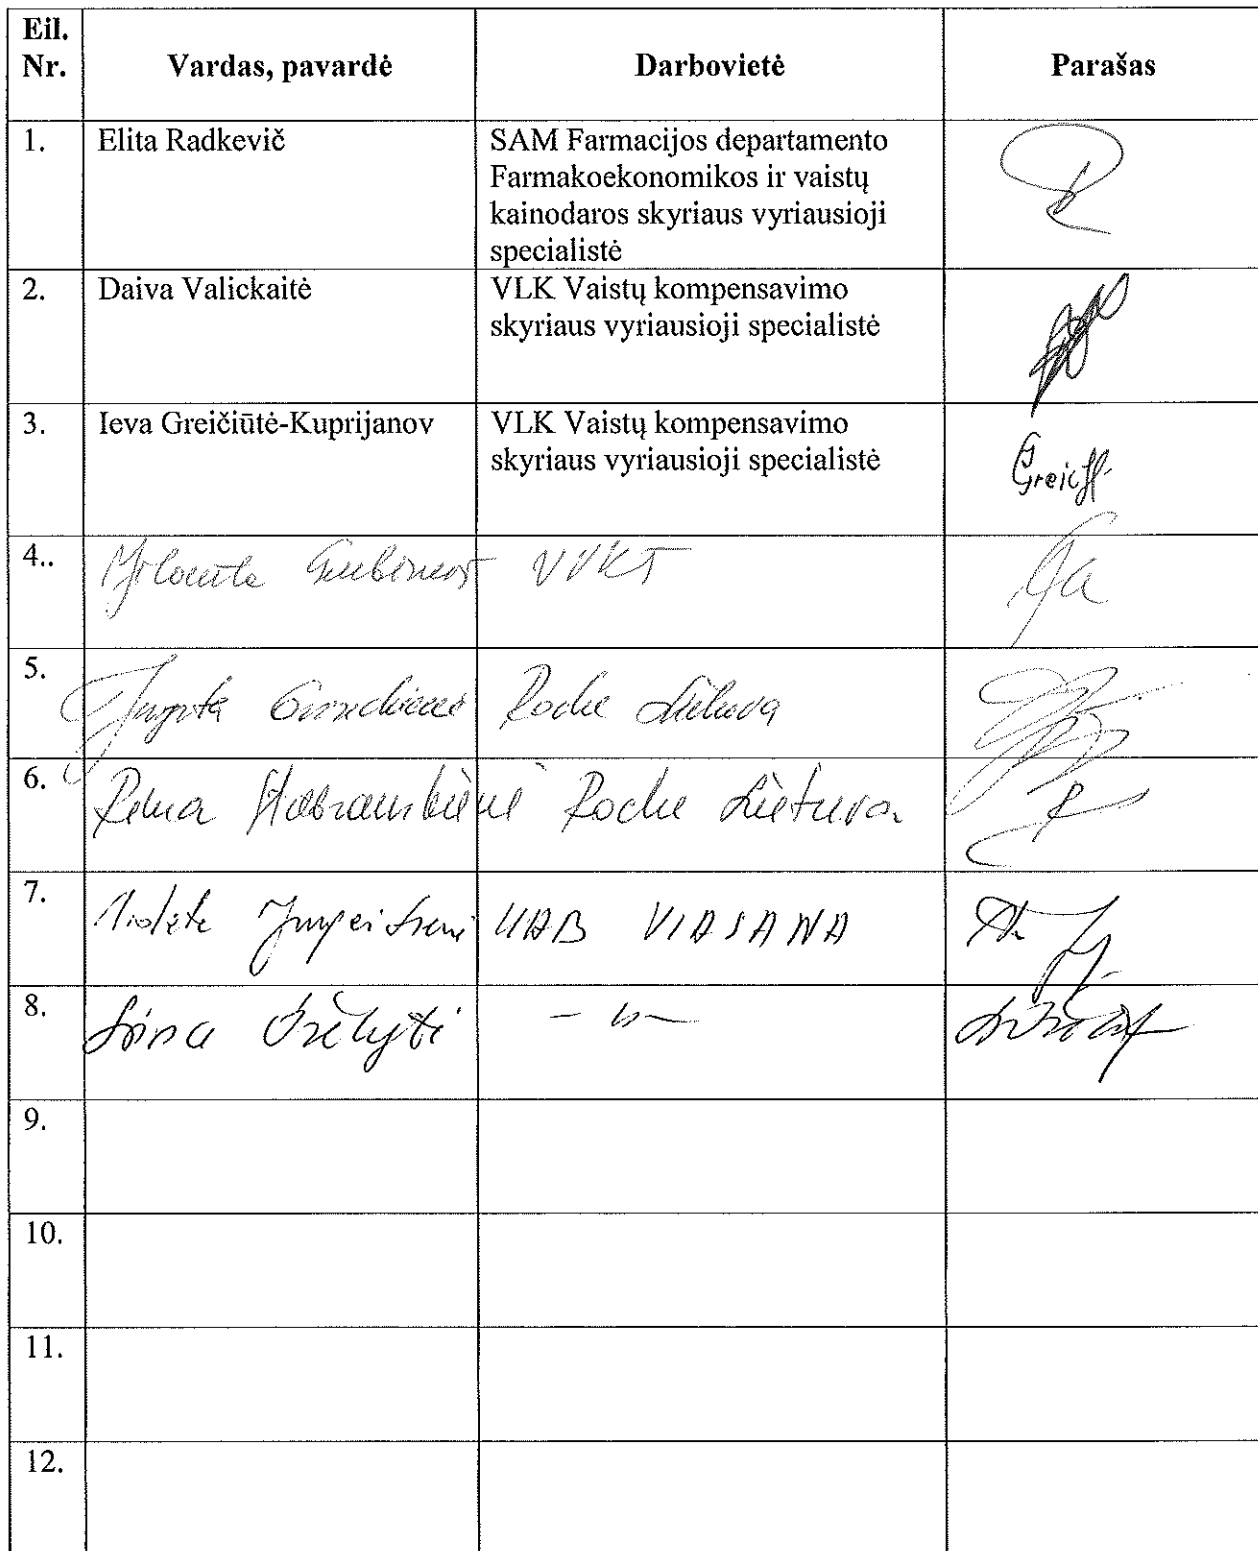 Eil.
Nr.
Vardas, pavardė
Darbovietė
Parašas
1.
Elita Radkevič
SAM Farmacijos departamento
Farmakoekonomikos ir vaistų
kainodaros skyriaus vyriausioji
specialistė
2.
Daiva Valickaitė
VLK Vaistų kompensavimo
skyriaus vyriausioji specialistė
3.
Ieva Greičiūtė-Kuprijanov
VLK Vaistų kompensavimo
skyriaus vyriausioji specialistė
4..
VVKT
5.
Roche Lietuva
6.
Roche Lietuva
7.
UAB VIASANA
8.
9.
10.
11.
12.